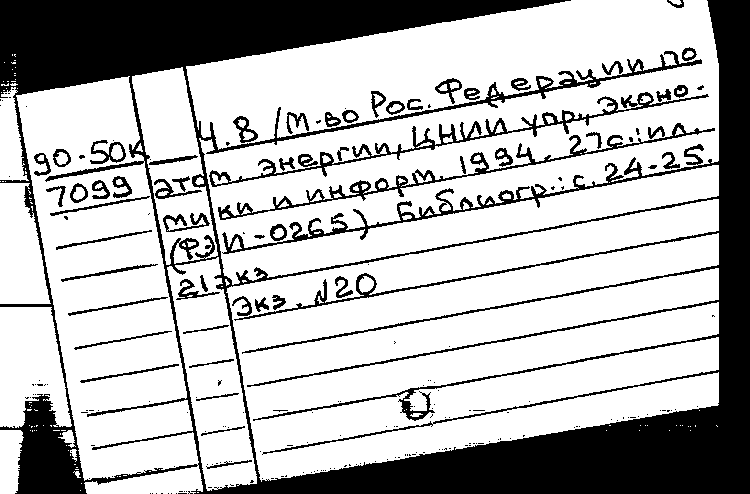 Ч.8 /М-во Рос. Федерации по
90-50К
атом. энергии, ЦНИИ упр., эконо-
7099
мики и информ. 1994. 27с.:ил.
(ФЭИ-0265). Библиогр.: с. 24-25.
21экз
Экз. №20